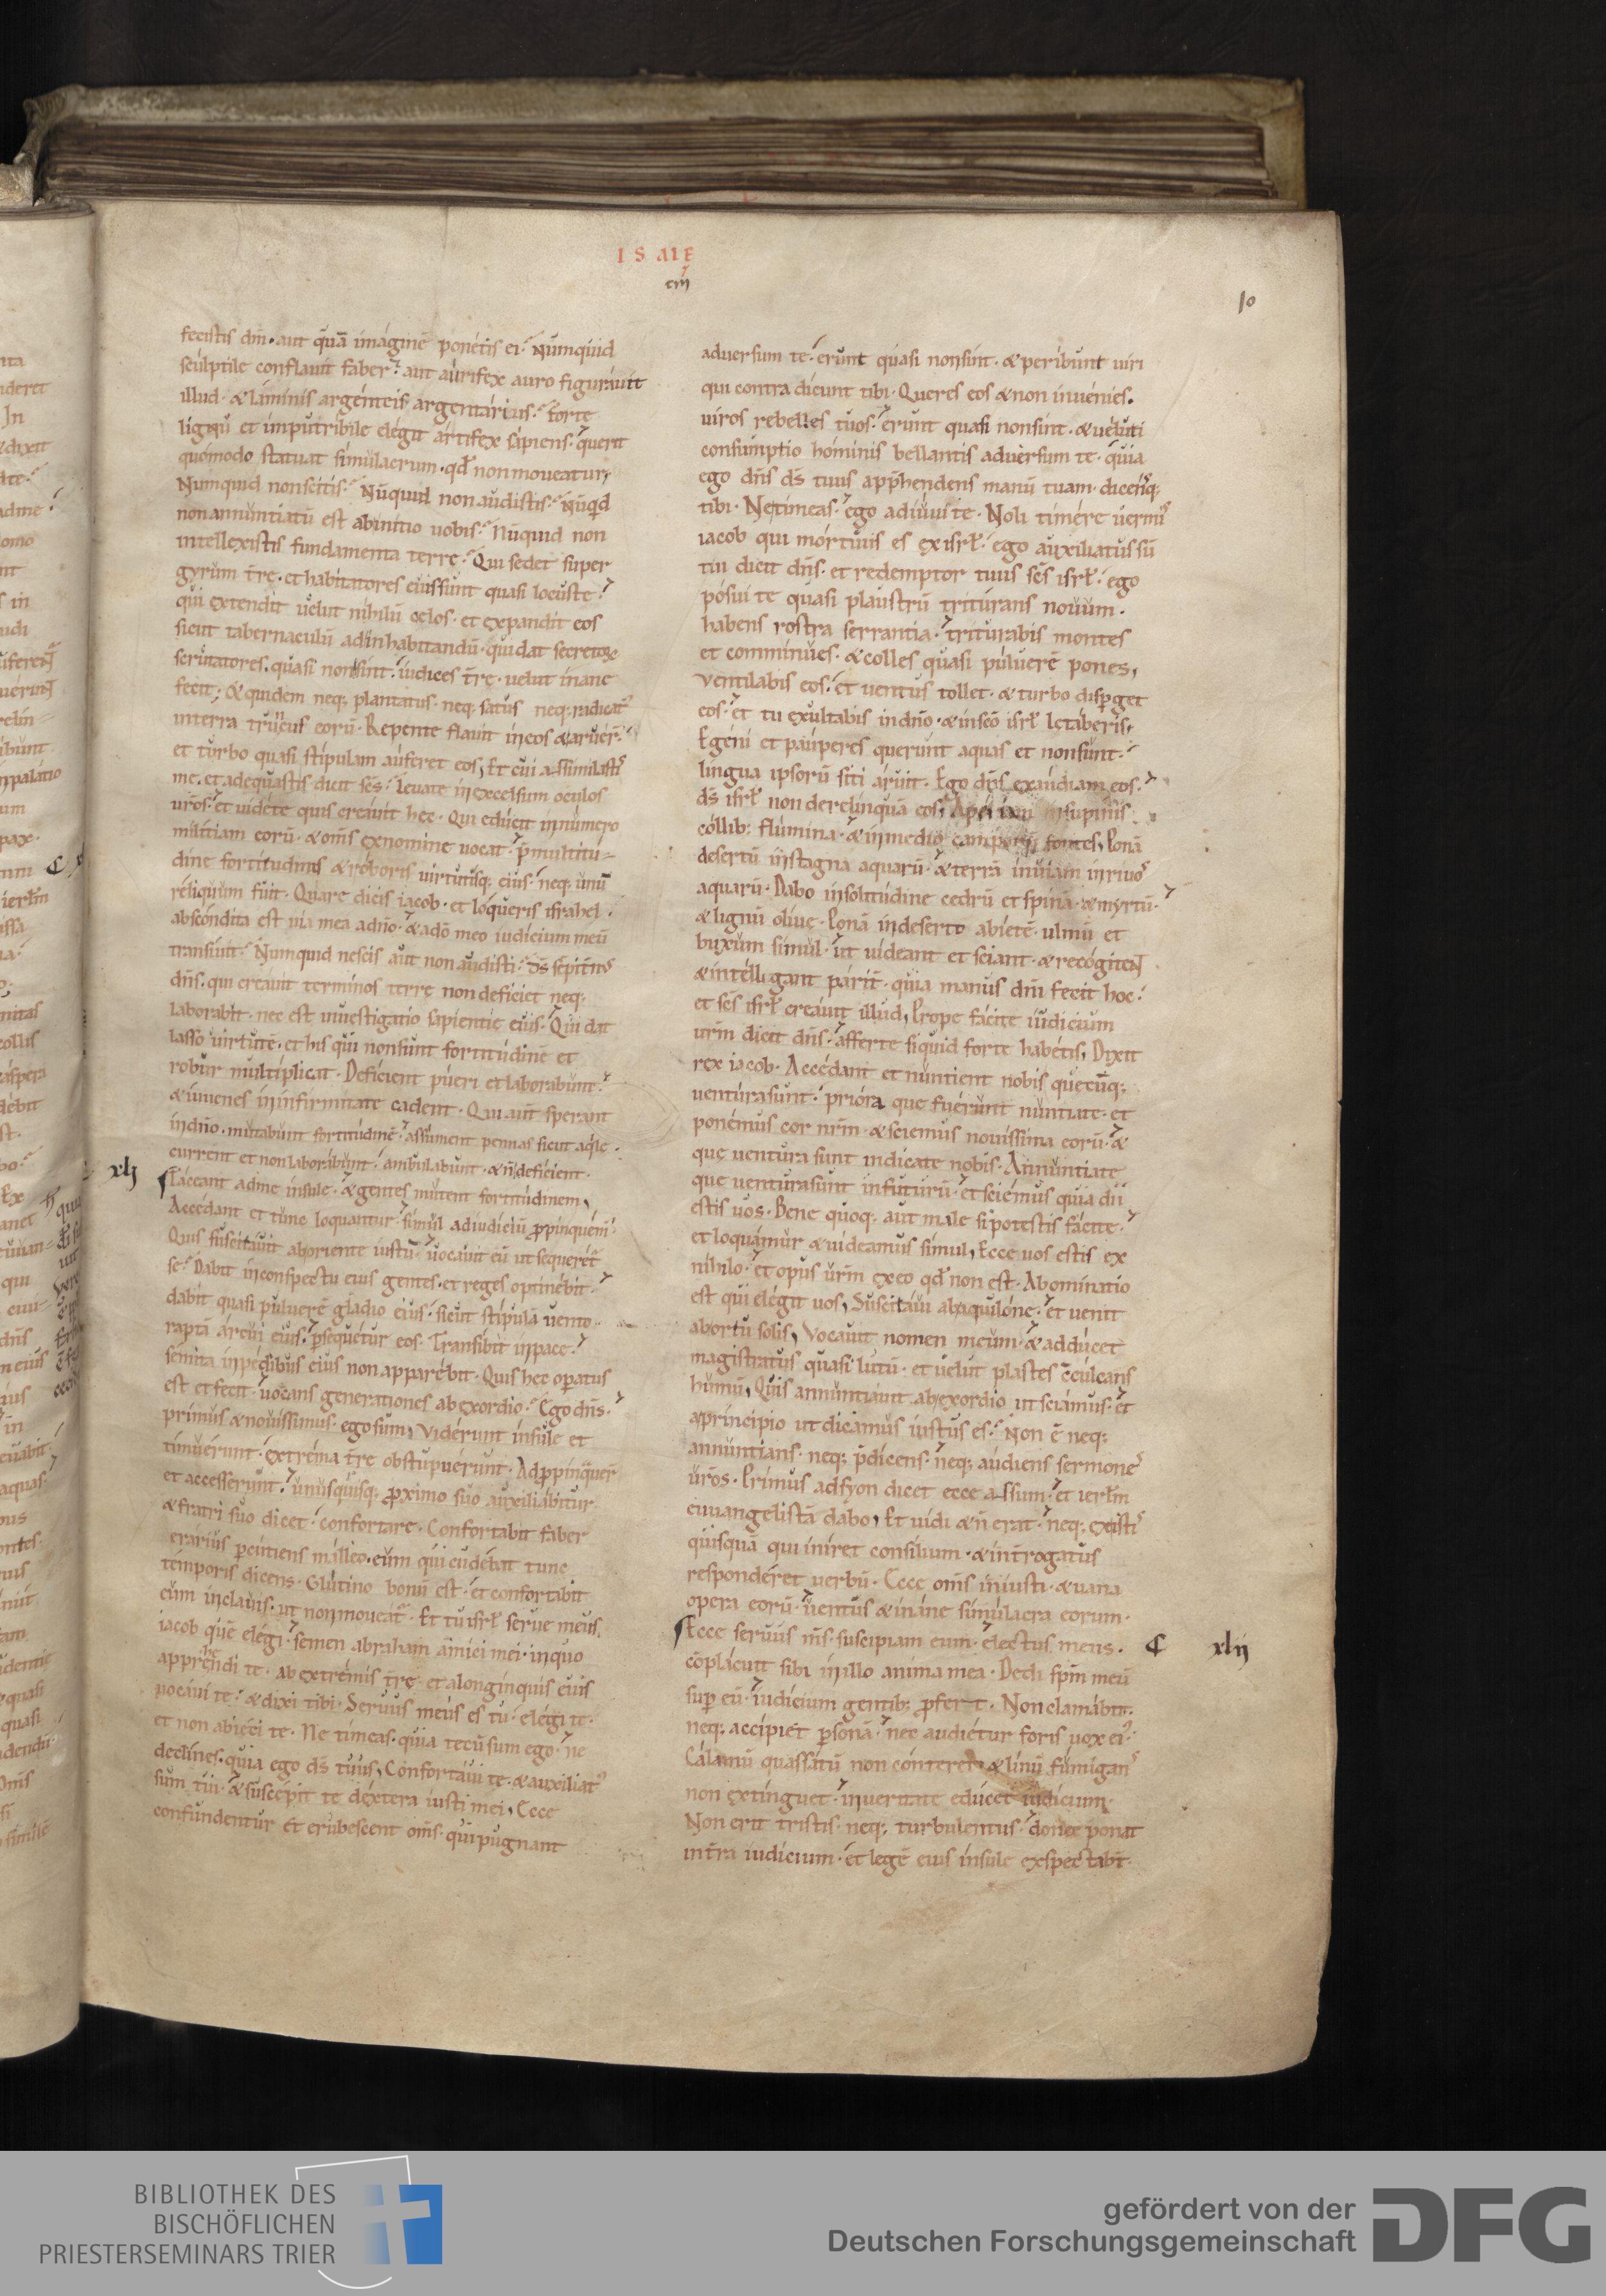 ISAIE
10
fecistis dn̄i· aut quā imaginē ponetis ei? Numquid
sculptile conflauit faber? aut aurifex auro figurauit
illud· & laminis argenteis argentarius? forte
lignū et imputribile elegit artifex sapiens· querit
quomodo statuat simulacrum· qđ non moueatur,
Numquid non scitis? Nūquid non audistis? Nūqd
non annuntiatū est abinitio uobis? Nūquid non
intellexistis fundamenta terrę? Qui sedet super
gyrum tr̄ę· et habitatores eius sunt quasi locustę·
qui extendit uelut nihilū cęlos· et expandit eos
sicut tabernaculū ad inhabitandū· qui dat secretorę
scrutatores· quasi non sint· iudices tr̄ę· uelut inane
fecit; & quidem neq; plantatus· neq; satus neq; radicat᾽
in terra truncus eorū· Repente flauit in eos & aruer̄·
et turbo quasi stipulam auferet eos, Et cui assimilasti᾽
me· et adequastis dicit sc̄s? Leuate in excelsum oculos
ur̄os· et uidete quis creauit hec· Qui educit in numero
militiam eorū· & om̄s ex nomine uocat· p̄ multitu-
dine fortitudinis & roboris uirtutisq; eius· neq; unū
reliquum fuit· Quare dicis iacob· et loqueris israhel·
abscondita est uia mea a dn̄o· & a dō meo iudicium meū
transiuit? Numquid nescis aut non audisti? Ds̄ sēpitn̄᾽
dn̄s· qui creauit terminos terrę non deficiet neq;
laborabit· nec est inuestigatio sapientię eius· Qui dat
lasso uirtutē· et his qui non sunt fortitudinē et
robur multiplicat· Deficient pueri et laborabunt·
& iuuenes in infirmitate cadent· Qui aut̄ sperant
in dn̄o· mutabunt fortitudinē· assument pennas sicut aqlę·
current et non laborabunt· ambulabunt· & n̄ deficient·
xlj
Taceant ad me insule· & gentes mutent fortitudinem,
Accedant et tunc loquantur· simul ad iudiciū p̱pinquem̄·
Quis suscitauit ab oriente iustū· uocauit eū ut sequeret̄
se? Dabit in conspectu eius gentes· et reges optinebit·
dabit quasi puluerē gladio eius· sicut stipulā uento
raptā arcui eius· p̱sequetur eos· Transibit in pace·
semita in pedibus eius non apparebit· Quis hec op̱atus
est et fecit· uocans generationes ab exordio? Ego dn̄s·
primus & nouissimus· ego sum, Viderunt insule et
timuerunt· extrema tr̄ę obstupuerunt· Adp̱pinquer̄
et accesserunt· unusquisq; p̱ximo suo auxiliabitur·
& fratri suo dicet· confortare· Confortabit faber
erarius p̱cutiens malleo· eum qui cudebat tunc
temporis dicens· Glutino bonū est· et confortabit
eum in clauis· ut non moueat᾽· Et tu isr̄l serue meus,
iacob quē elegi· semen abraham amici mei· in quo
apprehendi te· ab extremis tr̄ę· et a longinquis eius
uocaui te· & dixi tibi· Seruus meus es tu· elegi te·
et non abieci te· Ne timeas· quia tecū sum ego· ne
declines· quia ego ds̄ tuus, Confortaui te· & auxiliat᾽
sum tui· & suscepit te dextera iusti mei, Ecce
confundentur et erubescent om̄s· qui pugnant
aduersum te· erunt quasi non sint· & peribunt uiri
qui contradicunt tibi· Queres eos & non inuenies·
uiros rebelles tuos· erunt quasi non sint· & ueluti
consumptio hominis bellantis aduersum te· quia
ego dn̄s ds̄ tuus app̄hendens manū tuam· dicensq;
tibi· Ne timeas· ego adiuui te· Noli timere uermi᾽
iacob qui mortuus es ex isr̄l· ego auxiliatus sū
tui dicit dn̄s· et redemptor tuus sc̄s isr̄l· ego
posui te quasi plaustrū triturans nouum·
habens rostra serrantia· triturabis montes
et comminues· & colles quasi puluerē pones,
Ventilabis eos· et uentus tollet· & turbo disp̱get
eos· et tu exultabis in dn̄o· & in sc̄o isr̄l lętaberis,
Egeni et pauperes querunt aquas et non sunt·
lingua ipsorū siti aruit· Ego dn̄s exaudiam eos·
ds̄ isr̄l non derelinquā eos, supinis
collib; flumina· & in medio camporū fontes, Ponā
desertū in stagna aquarū· & terrā inuiam in riuo᾽
aquarū· Dabo in solitudinē cedrū et spinā· & myrtū·
& lignū oliuę· Ponā in deserto abietē· ulmū et
buxum simul· ut uideant et sciant· & recogiten̄
& intelligant parit̄· quia manus dn̄i fecit hoc·
et sc̄s isr̄l creauit illud, Prope facite iudicium
ur̄m dicit dn̄s· afferte siquid forte habetis, Dixit
rex iacob· Accedant et nuntient nobis quęcūq;
uentura sunt· priora que fuerunt nuntiate· et
ponemus cor nr̄m· & sciemus nouissima eorū· &
que uentura sunt indicate nobis· Annuntiate
que uentura sunt in futurū· et sciemus quia dii
estis uos· Bene quoq; aut male si potestis facite·
et loquamur & uideamus simul, Ecce uos estis ex
nihilo· et opus ur̄m ex eo qđ non est· Abominatio
est qui elegit uos, Suscitaui ab aquilone· et uenit
ab ortu solis, Vocauit nomen meum· & adducet
magistratus quasi lutū· et uelut plastes cc̄ulcans
humū, Quis annuntiauit ab exordio ut sciamus· et
a principio ut dicamus iustus es? Non ē neq;
annuntians· neq; p̄dicens· neq; audiens sermone᾽
ur̄os· Primus ad syon dicet ecce assum· et ierl̄m
euuangelistā dabo, Et uidi & n̄ erat· neq; ex isti᾽
quisquā qui iniret consilium· & int̄rogatus
responderet uerbū· Ecce om̄s iniusti· & uana
opera eorū· uentus & inane simulacra eorum·
Ecce seruus m̄s· suscipiam eum· electus meus·
C xlij
cōplacuit sibi in illo anima mea· Dedi sp̄m meū
sup̱ eū· iudicium gentib; p̱fert· Non clamabit·
neq; accipiet p̱sonā· nec audietur foris uox ei᾽·
Calamū quassatū non conteret· & linū fumigan᾽
non extinguet· in ueritate educet iudicium·
Non erit tristis· neq; turbulentus· donec ponat
in tr̄a iudicium· et legē eius insulę exspectabt̄·
BIBLIOTHEK DES
BISCHÖFLICHEN
PRIESTERSEMINARS TRIER
gefördert von der
Deutschen Forschungsgemeinschaft
DFG